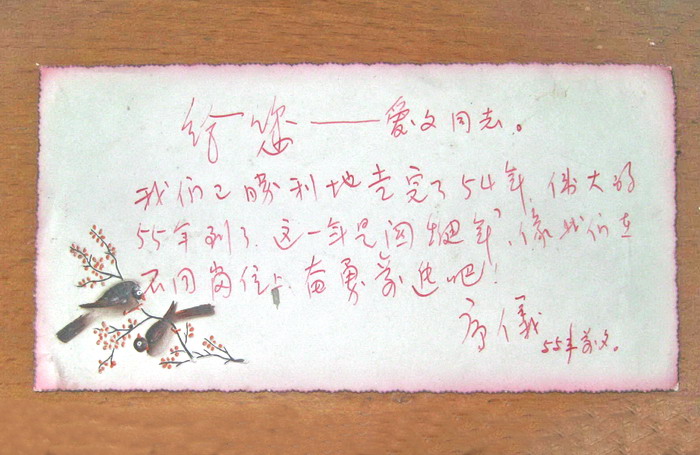 给您——爱文同志。
我们已勝利地走完了54年,伟大的
55年到了.这一年是関鍵年,我们在
不同崗位上奋勇前进吧!
儀
55年前夕。